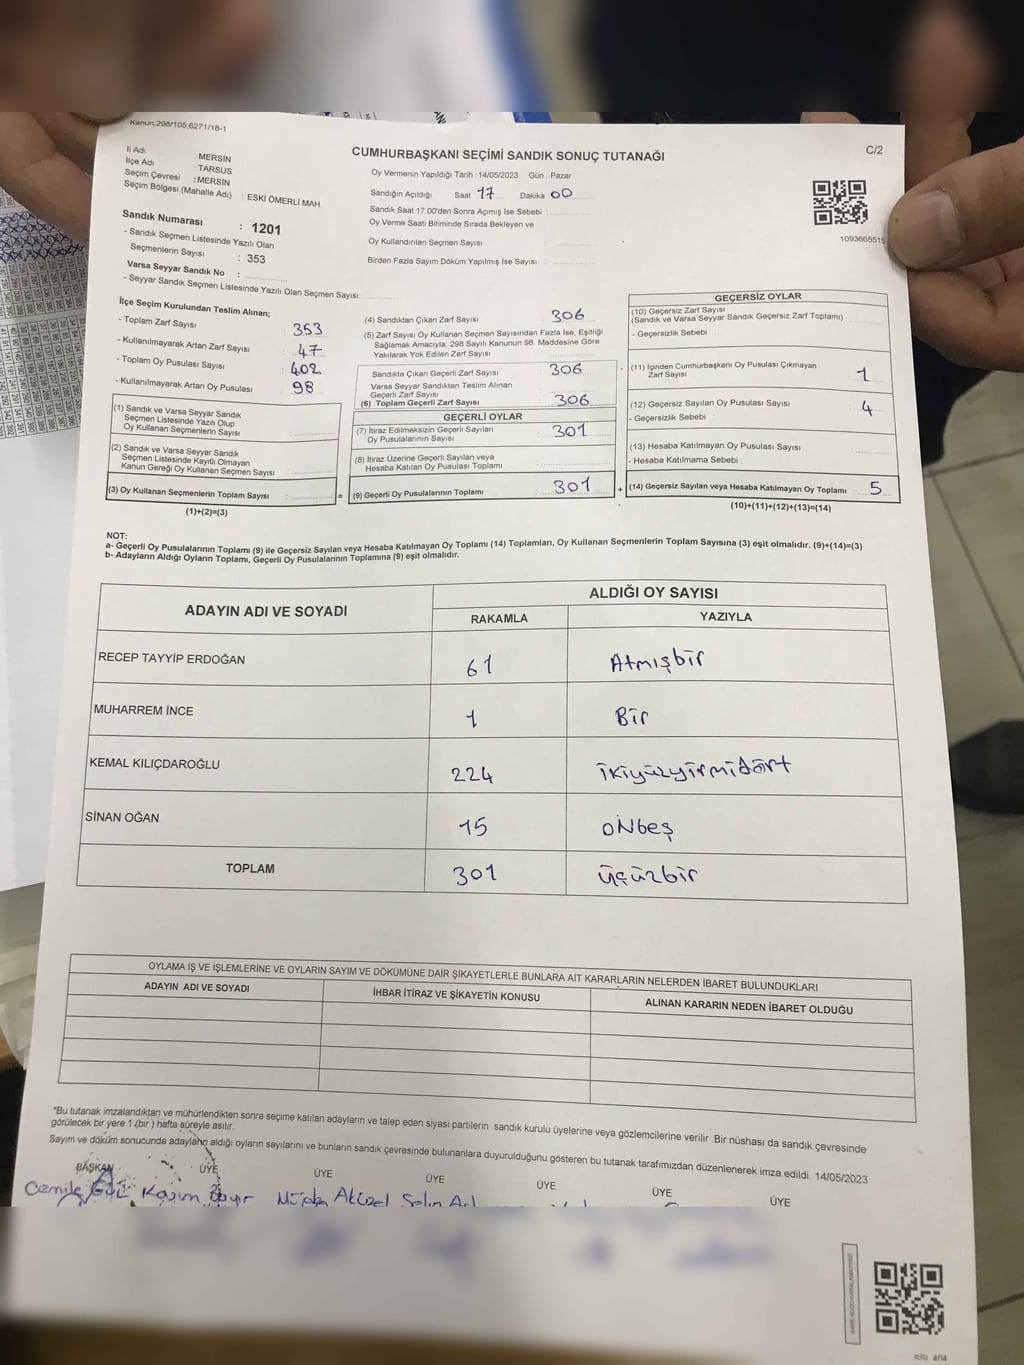 Kanun:298/105,6271/18-1
C/2
CUMHURBAŞKANI SEÇİMİ SANDIK SONUÇ TUTANAĞI
İl Adı : MERSİN
İlçe Adı : TARSUS
Seçim Çevresi : MERSİN
Seçim Bölgesi (Mahalle Adı) : ESKİ ÖMERLİ MAH.
Oy Vermenin Yapıldığı Tarih :14/05/2023 Gün : Pazar
Sandığın Açıldığı Saat 17 Dakika 00
Sandık Saat 17.00'den Sonra Açımış İse Sebebi :
Oy Verme Saati Bitiminde Sırada Bekleyen ve
Oy Kullandırılan Seçmen Sayısı :
Birden Fazla Sayım Döküm Yapılmış İse Sayısı :
1093665515
Sandık Numarası : 1201
- Sandık Seçmen Listesinde Yazılı Olan
Seçmenlerin Sayısı : 353
Varsa Seyyar Sandık No :
- Seyyar Sandık Seçmen Listesinde Yazılı Olan Seçmen Sayısı:
İlçe Seçim Kurulundan Teslim Alınan;
- Toplam Zarf Sayısı : 353
- Kullanılmayarak Artan Zarf Sayısı : 47
- Toplam Oy Pusulası Sayısı : 402
- Kullanılmayarak Artan Oy Pusulası : 98
(1) Sandık ve Varsa Seyyar Sandık
Seçmen Listesinde Yazılı Olup
Oy Kullanan Seçmenlerin Sayısı :
(2) Sandık ve Varsa Seyyar Sandık
Seçmen Listesinde Kayıtlı Olmayan
Kanun Gereği Oy Kullanan Seçmen Sayısı :
(3) Oy Kullanan Seçmenlerin Toplam Sayısı : =
(1)+(2)=(3)
(4) Sandıktan Çıkan Zarf Sayısı : 306
(5) Zarf Sayısı Oy Kullanan Seçmen Sayısından Fazla İse, Eşitliği
Sağlamak Amacıyla; 298 Sayılı Kanunun 98. Maddesine Göre
Yakılarak Yok Edilen Zarf Sayısı :
Sandıkta Çıkan Geçerli Zarf Sayısı : 306
Varsa Seyyar Sandıktan Teslim Alınan
Geçerli Zarf Sayısı :
(6) Toplam Geçerli Zarf Sayısı : 306
GEÇERLİ OYLAR
(7) İtiraz Edilmeksizin Geçerli Sayılan
Oy Pusulalarının Sayısı : 301
(8) İtiraz Üzerine Geçerli Sayılan veya
Hesaba Katılan Oy Pusulası Toplamı :
(9) Geçerli Oy Pusulalarının Toplamı : 301 +
GEÇERSİZ OYLAR
(10) Geçersiz Zarf Sayısı
(Sandık ve Varsa Seyyar Sandık Geçersiz Zarf Toplamı) :
- Geçersizlik Sebebi :
(11) İçinden Cumhurbaşkanı Oy Pusulası Çıkmayan
Zarf Sayısı : 1
(12) Geçersiz Sayılan Oy Pusulası Sayısı : 4
- Geçersizlik Sebebi :
(13) Hesaba Katılmayan Oy Pusulası Sayısı :
- Hesaba Katılmama Sebebi :
(14) Geçersiz Sayılan veya Hesaba Katılmayan Oy Toplamı : 5
(10)+(11)+(12)+(13)=(14)
NOT:
a- Geçerli Oy Pusulalarının Toplamı (9) ile Geçersiz Sayılan veya Hesaba Katılmayan Oy Toplamı (14) Toplamları, Oy Kullanan Seçmenlerin Toplam Sayısına (3) eşit olmalıdır. (9)+(14)=(3)
b- Adayların Aldığı Oyların Toplamı, Geçerli Oy Pusulalarının Toplamına (9) eşit olmalıdır.
ADAYIN ADI VE SOYADI
ALDIĞI OY SAYISI
RAKAMLA YAZIYLA
RECEP TAYYİP ERDOĞAN 61 Atmışbir
MUHARREM İNCE 1 Bir
KEMAL KILIÇDAROĞLU 224 ikiyüzyirmidört
SİNAN OĞAN 15 ONbeş
TOPLAM 301 üçüzbir
OYLAMA İŞ VE İŞLEMLERİNE VE OYLARIN SAYIM VE DÖKÜMÜNE DAİR ŞİKAYETLERLE BUNLARA AİT KARARLARIN NELERDEN İBARET BULUNDUKLARI
ADAYIN ADI VE SOYADI İHBAR İTİRAZ VE ŞİKAYETİN KONUSU ALINAN KARARIN NEDEN İBARET OLDUĞU
*Bu tutanak imzalandıktan ve mühürlendikten sonra seçime katılan adayların ve talep eden siyasi partilerin sandık kurulu üyelerine veya gözlemcilerine verilir .Bir nüshası da sandık çevresinde
görülecek bir yere 1 (bir ) hafta süreyle asılır.
Sayım ve döküm sonucunda adayların aldığı oyların sayılarını ve bunların sandık çevresinde bulunanlara duyurulduğunu gösteren bu tutanak tarafımızdan düzenlenerek imza edildi. 14/05/2023
BAŞKAN ÜYE ÜYE ÜYE ÜYE ÜYE ÜYE
Cemile Gül Kazım